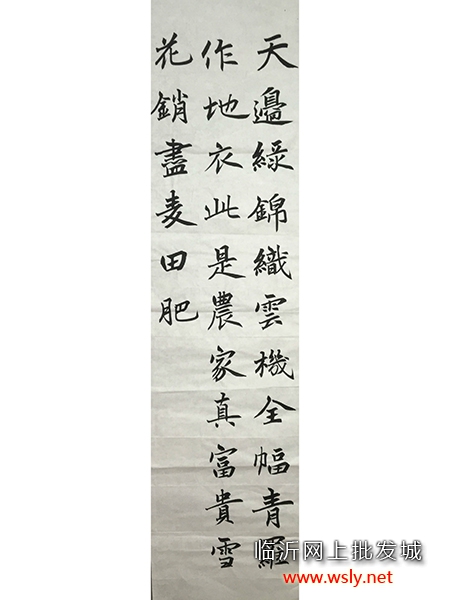 天邉綠錦織雲機全幅青羅
作地衣此是農家真富貴雪
花銷盡麦田肥
临沂网上批发城
www.wsly.net